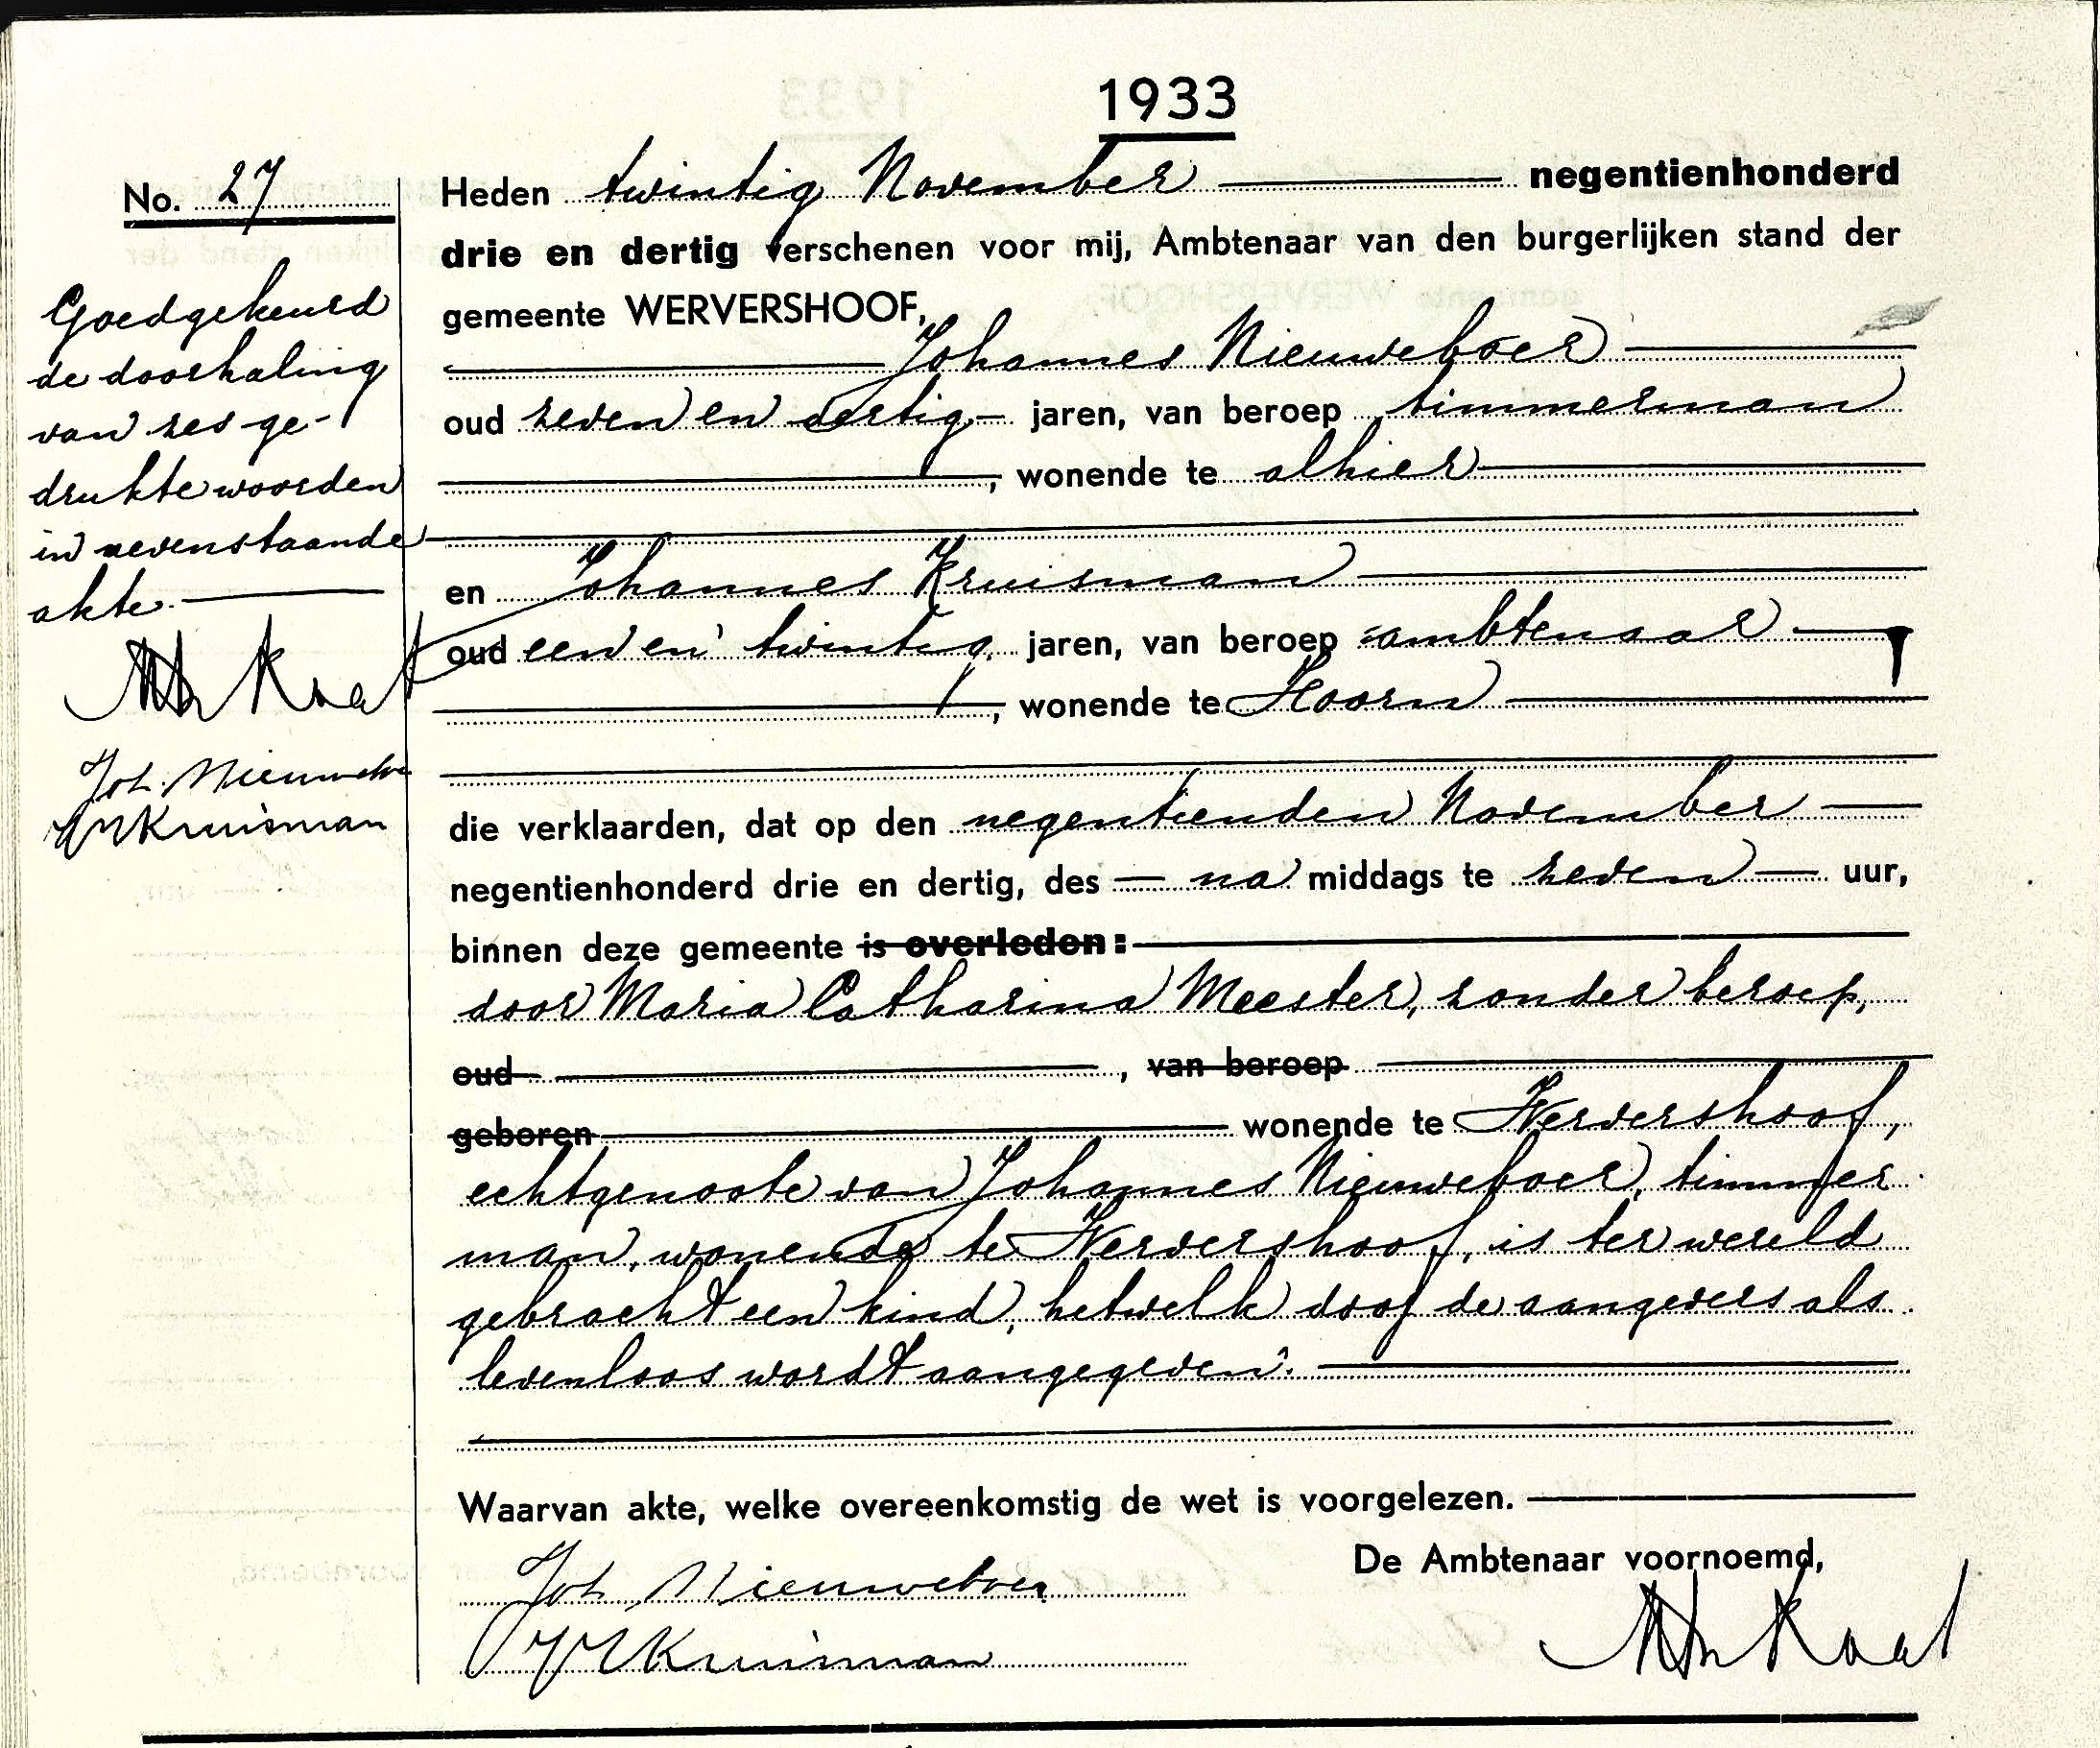 1933
No. 27
Heden twintig November negentienhonderd
drie en dertig verschenen voor mij, Ambtenaar van den burgerlijken stand der
gemeente WERVERSHOOF,
Johannes Nieuweboer
oud zeven en dertig jaren, van beroep timmerman
, wonende te alhier
en Johannes Kruisman
oud een en twintig jaren, van beroep ambtenaar
, wonende te Hoorn
die verklaarden, dat op den negentienden November
negentienhonderd drie en dertig, des na middags te zeven uur,
binnen deze gemeente is overleden:
door Maria Catharina Meester, zonder beroep,
oud , van beroep
geboren wonende te Wervershoof,
echtgenoote van Johannes Nieuweboer, timmer
man, wonende te Wervershoof, is ter wereld
gebracht een kind, hetwelk door de aangevers als
levenloos wordt aangegeven.
Waarvan akte, welke overeenkomstig de wet is voorgelezen.
De Ambtenaar voornoemd,
Joh Nieuweboer
Kruisman
Koat
Goedgekeurd
de doorhaling
van zes ge-
drukte woorden
in nevenstaande
akte.
Koat
Joh. Nieuwebo
Kruisman